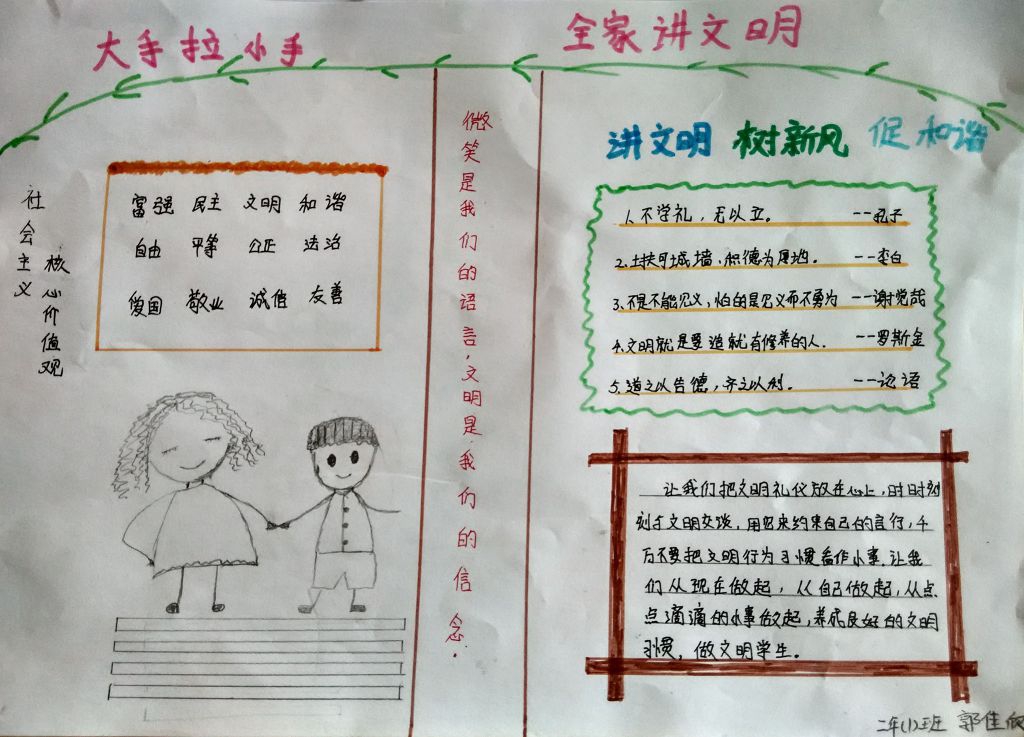 大手拉小手
全家讲文明
社会主义
核心价值观
富强 民主 文明 和谐
自由 平等 公正 法治
爱国 敬业 诚信 友善
微笑是我们的语言,文明是我们的信念.
讲文明 树新风 促和谐
1.不学礼，无以立。 --孔子
2.土扶可城墙,积德为厚地。 --李白
3.不是不能见义,怕的是见义而不勇为 --谢觉哉
4.文明就是要造就有修养的人. --罗斯金
5.道之以告德,齐之以利. --论语
让我们把文明礼仪放在心上,时时刻
刻与文明交谈,用它来约束自己的言行,千
万不要把文明行为习惯看作小事,让我
们从现在做起，从自己做起,从点
点滴滴的小事做起,养成良好的文明
习惯，做文明学生。
二年(1)班 郭佳